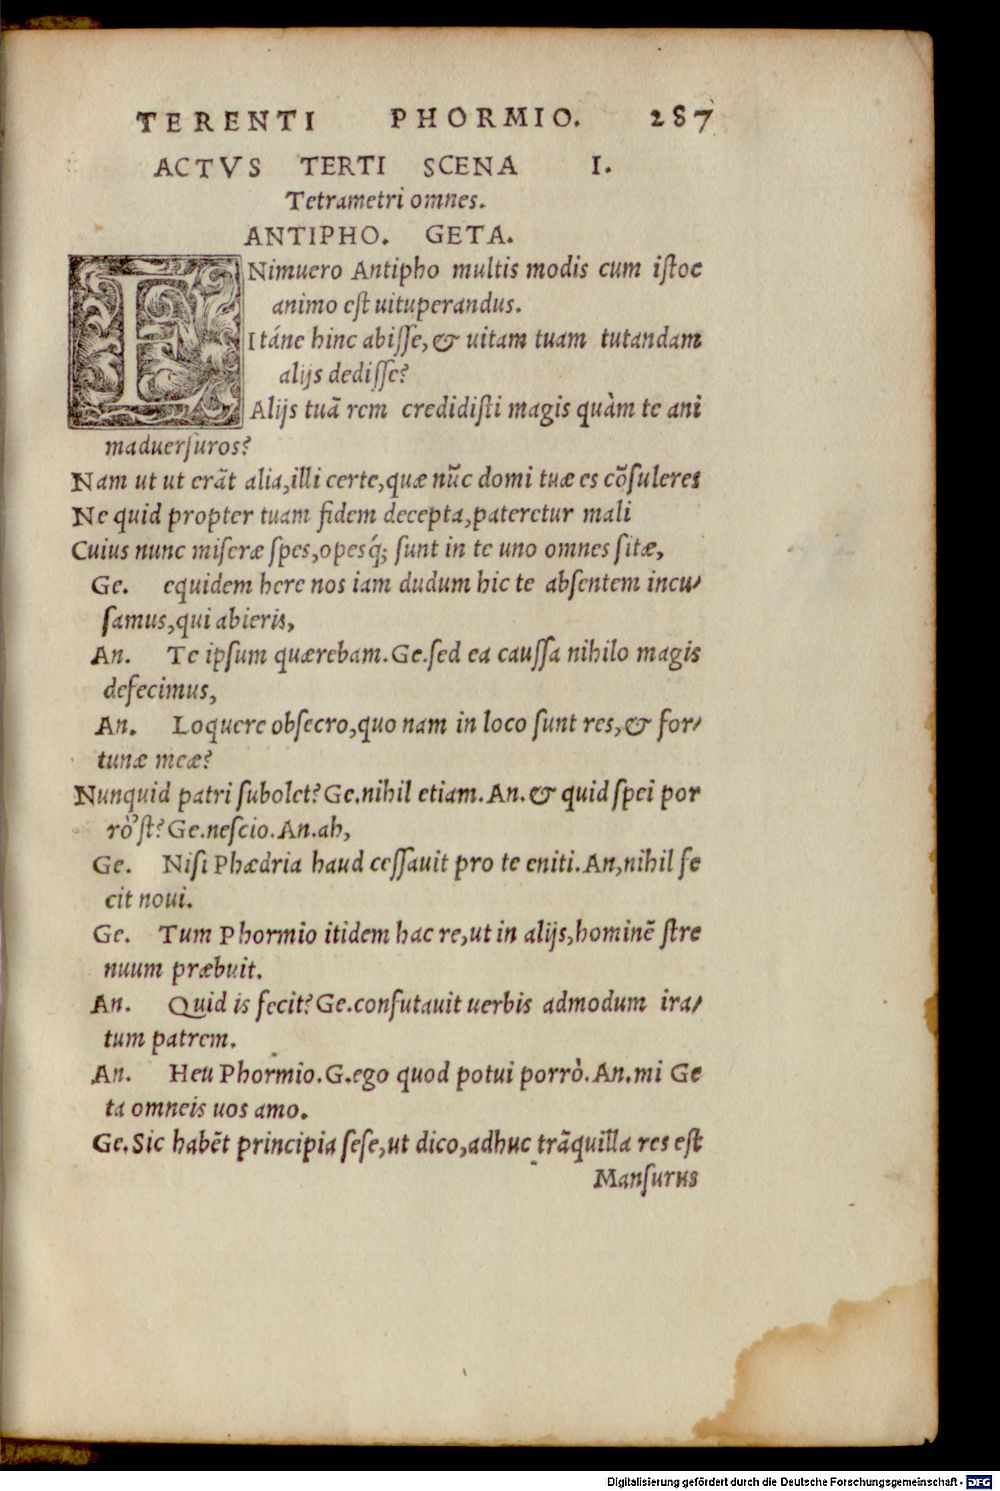 TERENTI PHORMIO. 287
ACTVS TERTI SCENA I.
Tetrametri omnes.
ANTIPHO. GETA.
ENimuero Antipho multis modis cum istoc
animo est uituperandus.
Itáne hinc abisse, & uitam tuam tutandam
alijs dedisse?
Alijs tuã rem credidisti magis quàm te ani
maduersuros?
Nam ut ut erãt alia, illi certe, quæ nũc domi tuæ es cõsuleres
Ne quid propter tuam fidem decepta, pateretur mali
Cuius nunc miseræ spes, opesq́; sunt in te uno omnes sitæ,
Ge. equidem here nos iam dudum hic te absentem incu-
samus, qui abieris,
An. Te ipsum quærebam. Ge. sed ea caussa nihilo magis
defecimus,
An. Loquere obsecro, quo nam in loco sunt res, & for-
tunæ meæ?
Nunquid patri subolet? Ge. nihil etiam. An. & quid spei por
rò'st? Ge. nescio. An. ah,
Ge. Nisi Phædria haud cessauit pro te eniti. An, nihil fe
cit noui.
Ge. Tum Phormio itidem hac re, ut in alijs, hominẽ stre
nuum præbuit.
An. Quid is fecit? Ge. confutauit uerbis admodum ira-
tum patrem.
An. Heu Phormio. G. ego quod potui porrò. An. mi Ge
ta omneis uos amo.
Ge. Sic habẽt principia sese, ut dico, adhuc trãquilla res est
Mansurus
Digitalisierung gefördert durch die Deutsche Forschungsgemeinschaft - DFG